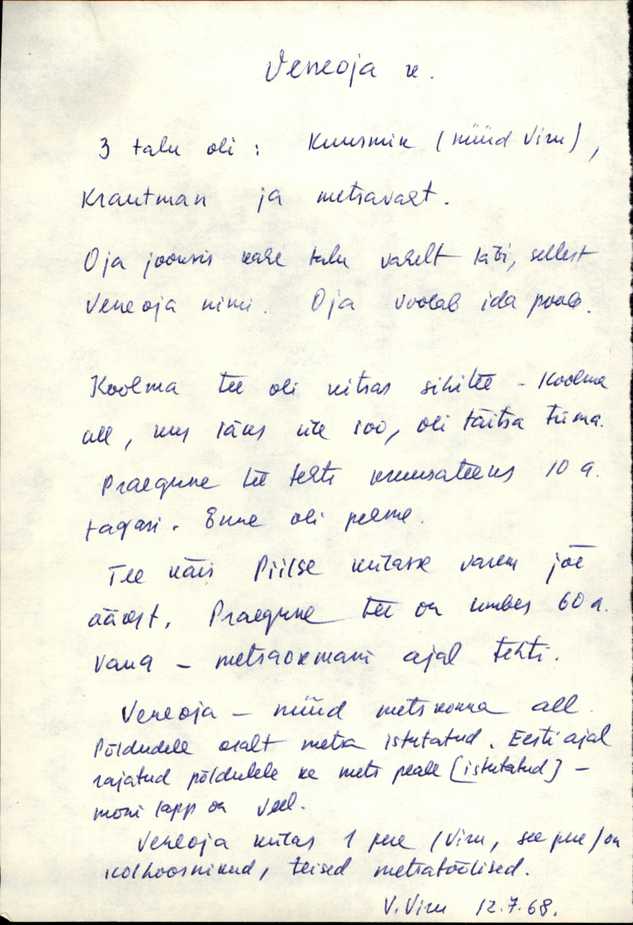 Veneoja k.
3 talu oli: Kuusmik (nüüd Viru),
Krautman ja metsavaht.
Oja jooksis kahe talu vahelt läbi, sellest
Veneoja nimi. Oja voolab ida poole.
Koolma tee oli kitsas sihitee - Koolma
all, kus läks üle soo, oli täitsa tüma.
Praegune tee tehti kruusateeks 10 a.
tagasi. Enne oli pehme.
Tee käis Piilse külasse varem jõe
äärest. Praegune tee on umbes 60 a.
vana - metsaokmani ajal tehti.
Veneoja - nüüd metskonna all.
Põldudele osalt metsa istutatud. Eesti ajal
rajatud põldudele ke mets peale [istutatud] -
mõni lapp on veel.
Veneoja külas 1 pere (Viru, see pere) on
kolhoosnikud, teised metsatöölised.
V. Viru 12.7.68.